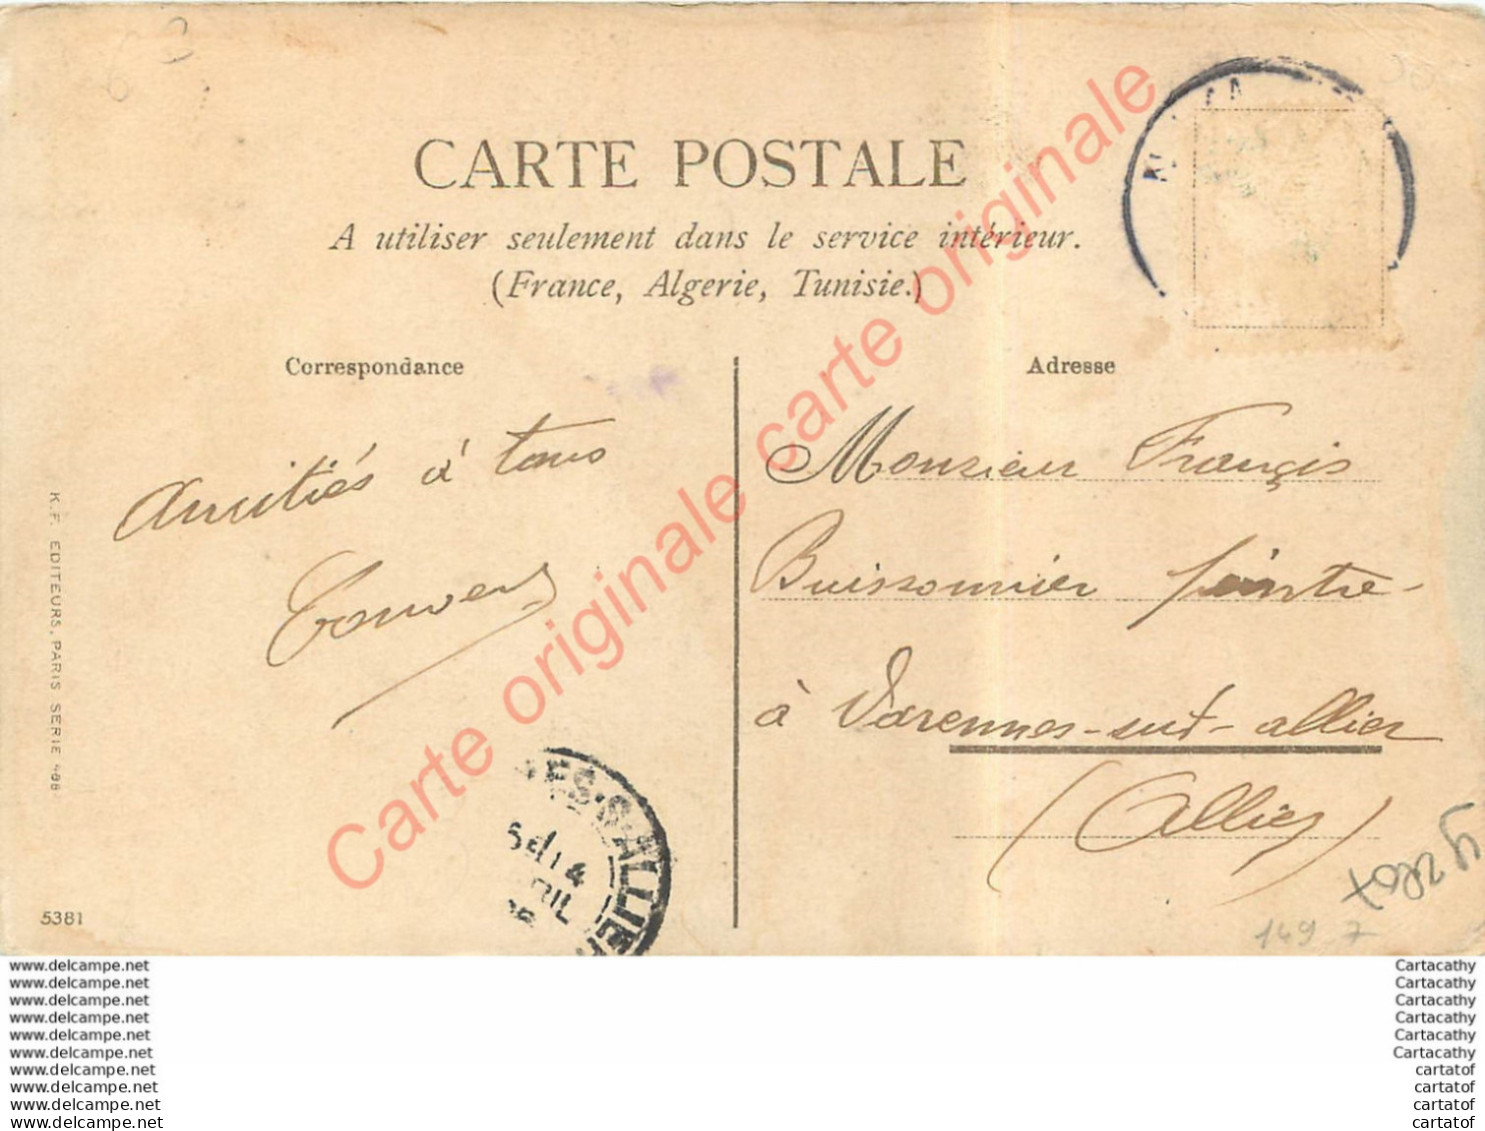 CARTE POSTALE
A utiliser seulement dans le service intérieur.
(France, Algerie, Tunisie.)
Correspondance
Adresse
Amitiés à tous
Monsieur François
Buissonnier peintre
à Varennes-sur-allier
(Allier)
K.F. EDITEURS, PARIS SERIE
5381
S·ALLIE
14
149 7
Carte originale carte originale
www.delcampe.net
www.delcampe.net
www.delcampe.net
www.delcampe.net
www.delcampe.net
www.delcampe.net
www.delcampe.net
www.delcampe.net
www.delcampe.net
www.delcampe.net
Cartacathy
Cartacathy
Cartacathy
Cartacathy
Cartacathy
Cartacathy
cartatof
cartatof
cartatof
cartatof